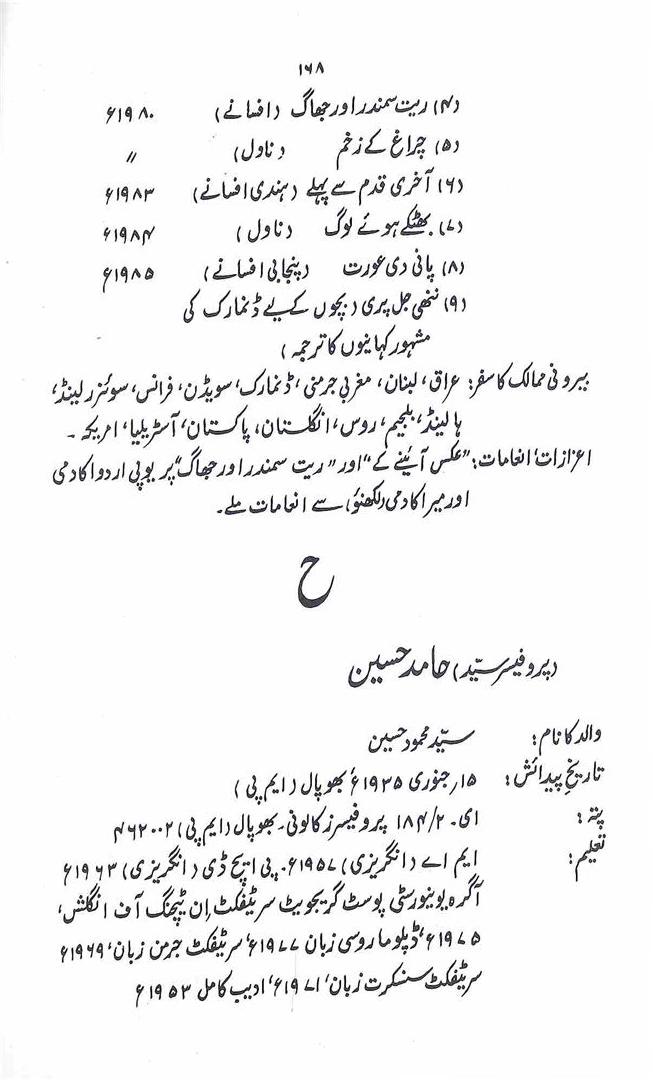 ۱۶۸
(۴) ریت سمندر اور جھاگ (افسانے) ۱۹۸۰ء
(۵) چراغ کے زخم (ناول) ″
(۶) آخری قدم سے پہلے (ہندی افسانے) ۱۹۸۳ء
(۷) بھٹکے ہوئے لوگ (ناول) ۱۹۸۴ء
(۸) پانی دی عورت (پنجابی افسانے) ۱۹۸۵ء
(۹) ننھی جل پری (بچوں کے لیے ڈنمارک کی
مشہور کہانیوں کا ترجمہ)
بیرونی ممالک کا سفر: عراق، لبنان، مغربی جرمنی، ڈنمارک، سویڈن، فرانس، سوئزرلینڈ،
ہالینڈ، بلجیم، روس، انگلستان، پاکستان، آسٹریلیا، امریکہ۔
اعزازات، انعامات: ”عکس آئینے کے“ اور ”ریت سمندر اور جھاگ“ پر یوپی اردو اکادمی
اور میر اکادمی (لکھنؤ) سے انعامات ملے۔
ح
(پروفیسر سیّد) حامد حسین
والد کا نام: سیّد محمود حسین
تاریخِ پیدائش: ۱۵؍ جنوری ۱۹۳۵ء بھوپال (ایم پی)
پتہ: ای۔ ۱۸۴/۲ پروفیسرز کالونی۔ بھوپال (ایم پی) ۴۶۲۰۰۲
تعلیم: ایم اے (انگریزی) ۱۹۵۷ء۔ پی ایچ ڈی (انگریزی) ۱۹۶۳ء
آگرہ یونیورسٹی پوسٹ گریجویٹ سرٹیفکٹ ان ٹیچنگ آف انگلش،
۱۹۷۵ء، ڈپلوما روسی زبان ۱۹۷۷ء، سرٹیفکٹ جرمن زبان، ۱۹۶۹ء
سرٹیفکٹ سنسکرت زبان، ۱۹۷۱ء، ادیب کامل ۱۹۵۳ء